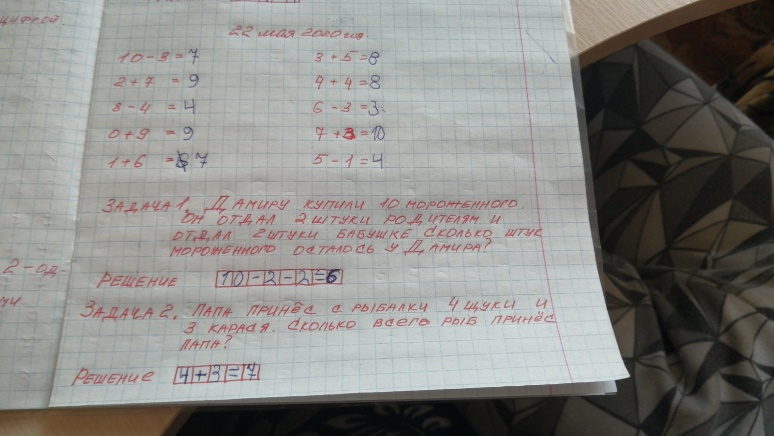 цифрой.
22 мая 2020 год.
10 - 3 = 7
3 + 5 = 8
2 + 7 = 9
4 + 4 = 8
8 - 4 = 4
6 - 3 = 3
0 + 9 = 9
7 + 3 = 10
1 + 6 = 7
5 - 1 = 4
ЗАДАЧА 1. ДАМИРУ КУПИЛИ 10 МОРОЖЕННОГО.
ОН ОТДАЛ 2 ШТУКИ РОДИТЕЛЯМ И
ОТДАЛ 2 ШТУКИ БАБУШКЕ. СКОЛЬКО ШТУК
МОРОЖЕННОГО ОСТАЛОСЬ У ДАМИРА?
2-од-
РЕШЕНИЕ 10-2-2=6
ЗАДАЧА 2. ПАПА ПРИНЁС С РЫБАЛКИ 4 ЩУКИ И
3 КАРАСЯ. СКОЛЬКО ВСЕГО РЫБ ПРИНЁС
ПАПА?
РЕШЕНИЕ 4+3=7